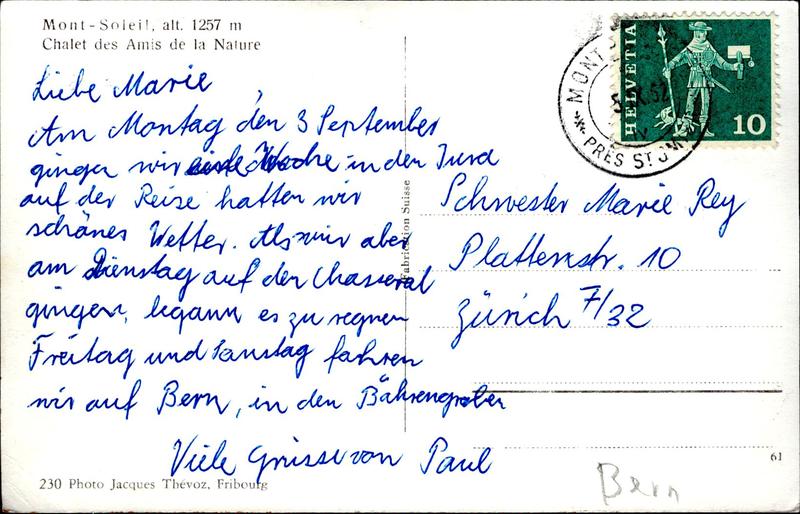 Mont-Soleil, alt. 1257 m
Chalet des Amis de la Nature
Liebe Marie,
Am Montag den 3 September
gingen wir eine Woche in den Jura
auf der Reise hatten wir
schönes Wetter. Als wir aber
am Dienstag auf der Chasseral
gingen, begann es zu regnen
Freitag und Samstag fahren
wir auf Bern, in den Bährengraben
Viele Grüsse von Paul
230 Photo Jacques Thévoz, Fribourg
Fabrication Suisse
HELVETIA
10
MONT
PRÈS ST IM
Schwester Marie Rey
Plattenstr. 10
Zürich 7/32
61
Bern